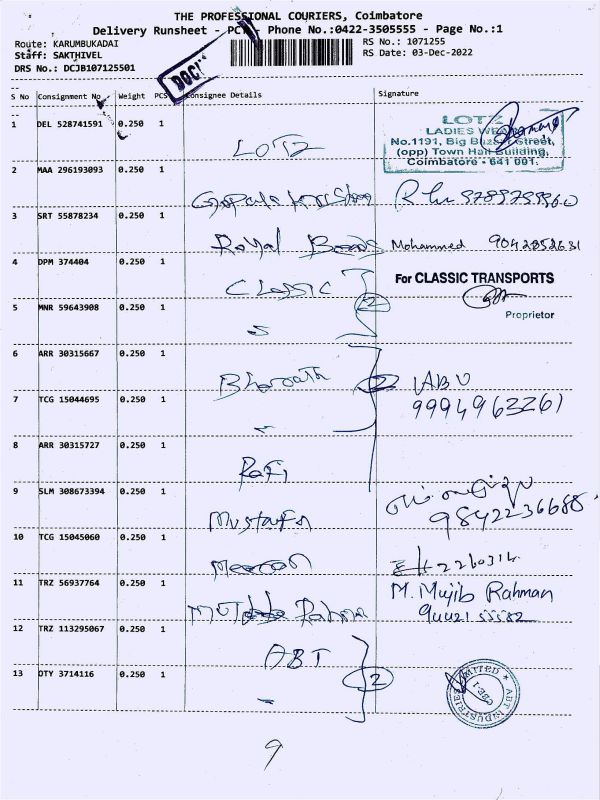 THE PROFESSIONAL COURIERS, Coimbatore
Delivery Runsheet - PCT Phone No.:0422-3505555 - Page No.:1
Route: KARUMBUKADAI
RS No.: 1071255
Staff: SAKTHIVEL
RS Date: 03-Dec-2022
DRS No.: DCJB107125501
DOC
S No Consignment No Weight PCS Consignee Details Signature
1 DEL 528741591 0.250 1 LOTZ
LOTZ
LADIES WEAR
No.1191, Big Bazaar Street,
(opp) Town Hall Building,
Coimbatore - 641 001.
2 MAA 296193093 0.250 1
3 SRT 55878234 0.250 1 Royal Mohammed 9042858631
4 DPM 374404 0.250 1 Classic
For CLASSIC TRANSPORTS
2
5 MNR 59643908 0.250 1 "
Proprietor
6 ARR 30315667 0.250 1 Bharath 2 ABU
9994963261
7 TCG 15044695 0.250 1 "
8 ARR 30315727 0.250 1 Rafi
9 SLM 308673394 0.250 1 Mustafa
9842236688
10 TCG 15045060 0.250 1
11 TRZ 56937764 0.250 1 Rahman M. Mujib Rahman
12 TRZ 113295067 0.250 1 ABT
13 OTY 3714116 0.250 1 " 2
ABT INDUSTRIES LIMITED
CBE-1
9